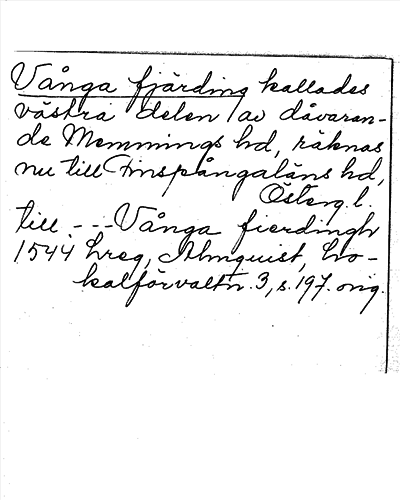 Vånga fjärding kallades
västra delen av dåvaran-
de Memmings hd, räknas
nu till Finspångaläns hd,
Österg. l.
till - - - Vånga fierdingh
1544 Lreg, Almquist, Lo-
kalförvaltn. 3, s. 197. orig.